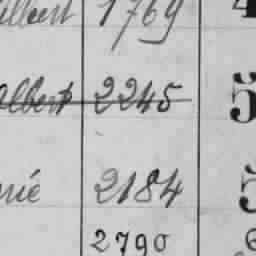 Albert 1769 4
Albert 2245 5
rié 2184 5
2790